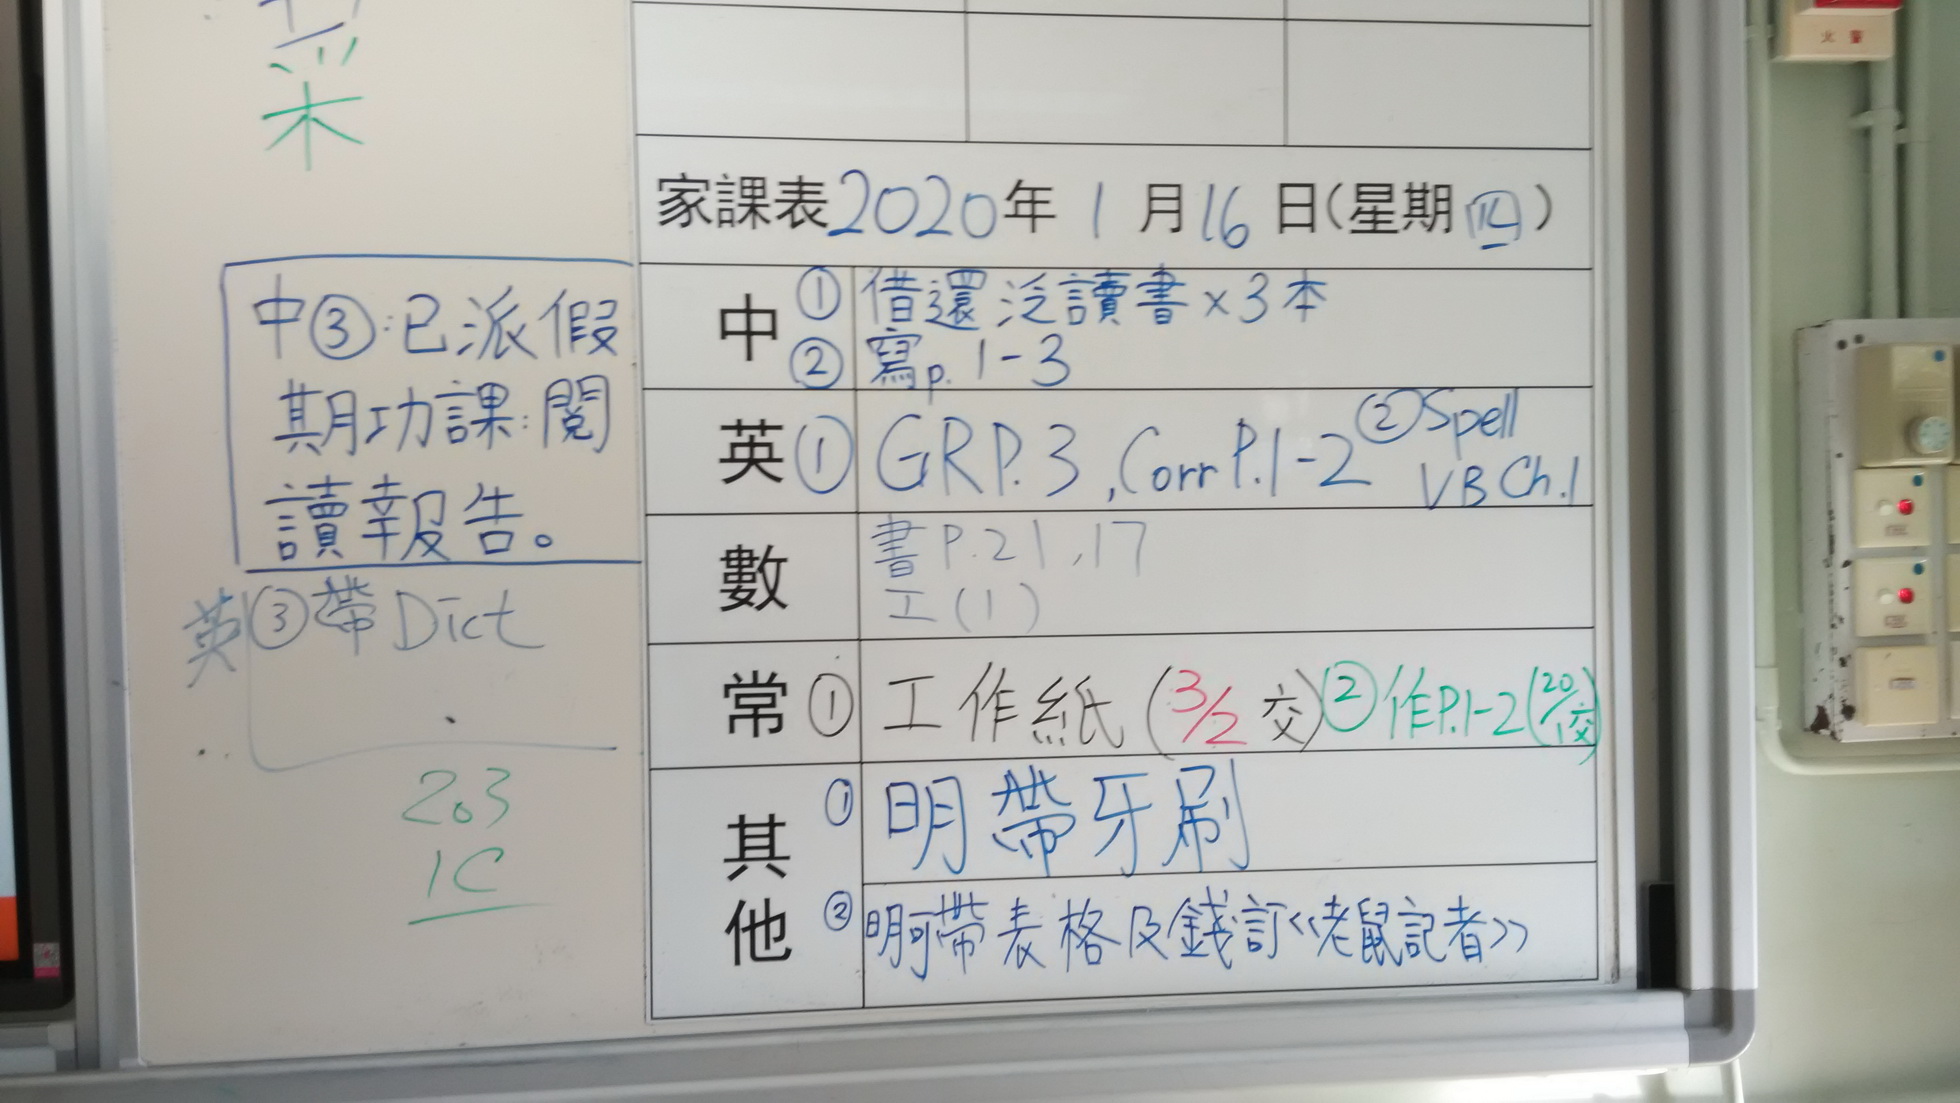 采
家課表2020年1月16日(星期四)
中 ① 借還泛讀書×3本
② 寫p.1-3
英 ① GRP.3,Corr P.1-2 ② Spell
VB Ch.1
數 書P.21,17
工(1)
常 ① 工作紙(3/2交) ② 作P.1-2(20/1交)
其他 ① 明帶牙刷
② 明可帶表格及錢訂《老鼠記者》
中③:已派假
期功課:閱
讀報告。
英③帶Dict
203
1C
火警